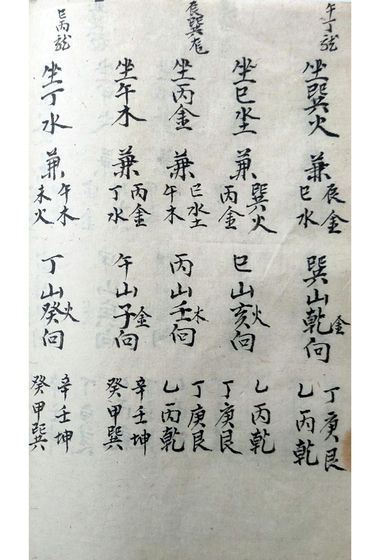 午丁龍
坐巽火
兼
辰金
巳水
巽山乾向
金
丁庚艮
乙丙乾
坐巳水土
兼
巽火
丙金
巳山亥向
火
乙丙乾
丁庚艮
辰巽龙
坐丙金
兼
巳水土
午木
丙山壬向
木
丁庚艮
乙丙乾
坐午木
兼
丙金
丁水
午山子向
金
辛壬坤
癸甲巽
巳丙龍
坐丁水
兼
午木
未火
丁山癸向
火
辛壬坤
癸甲巽